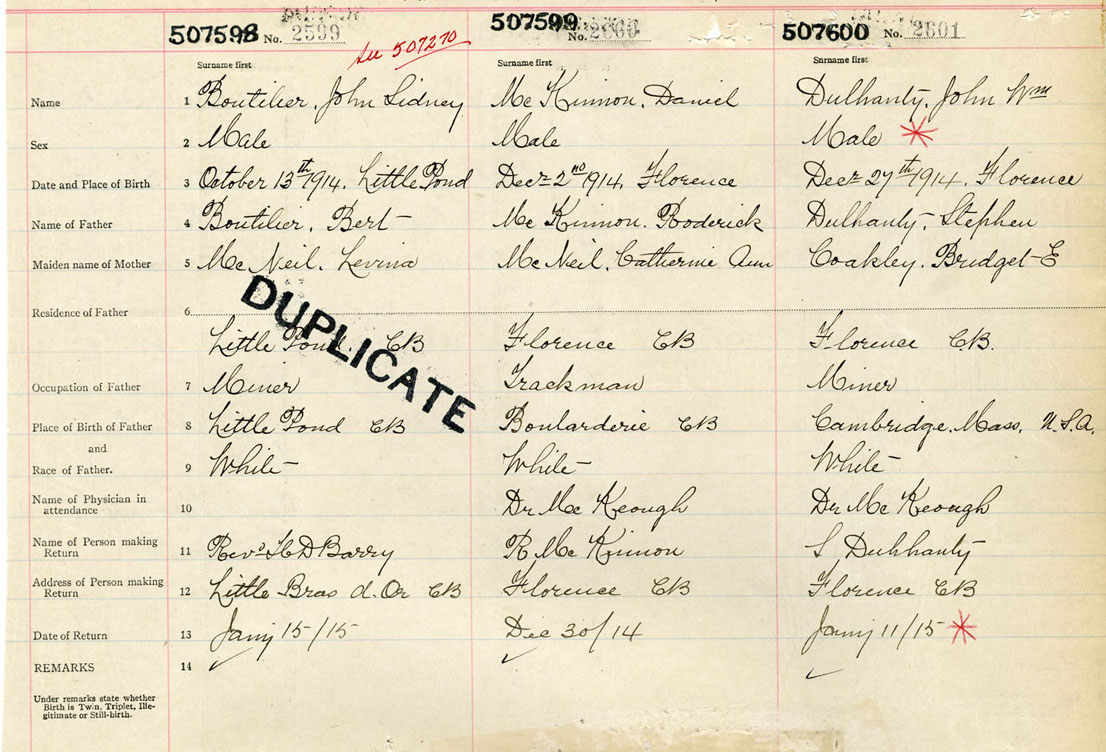 507598 No. 2599 507599 No. 2600 507600 No. 2601
see 507270
Surname first Surname first Surname first
Name 1 Boutilier, John Sidney Mc Kinnon, Daniel Dulhanty, John Wm
Sex 2 Male Male Male *
Date and Place of Birth 3 October 13th 1914. Little Pond Decr 2nd 1914. Florence Decr 27th 1914. Florence
Name of Father 4 Boutilier, Bert Mc Kinnon, Roderick Dulhanty, Stephen
Maiden name of Mother 5 Mc Neil, Levina Mc Neil, Catherine Ann Coakley, Bridget E
DUPLICATE
Residence of Father 6
Little Pond. CB Florence CB Florence C.B.
Occupation of Father 7 Miner Trackman Miner
Place of Birth of Father 8 Little Pond CB Boularderie CB Cambridge, Mass, U.S.A.
and
Race of Father. 9 White White White
Name of Physician in attendance 10 Dr Mc Keough Dr Mc Keough
Name of Person making Return 11 Revd H D Barry R Mc Kinnon S Dulhanty
Address of Person making Return 12 Little Bras d. Or CB Florence CB Florence CB
Date of Return 13 Jany 15/15 Dec 30/14 Jany 11/15 *
REMARKS 14
Under remarks state whether
Birth is Twin, Triplet, Ille-
gitimate or Still-birth.